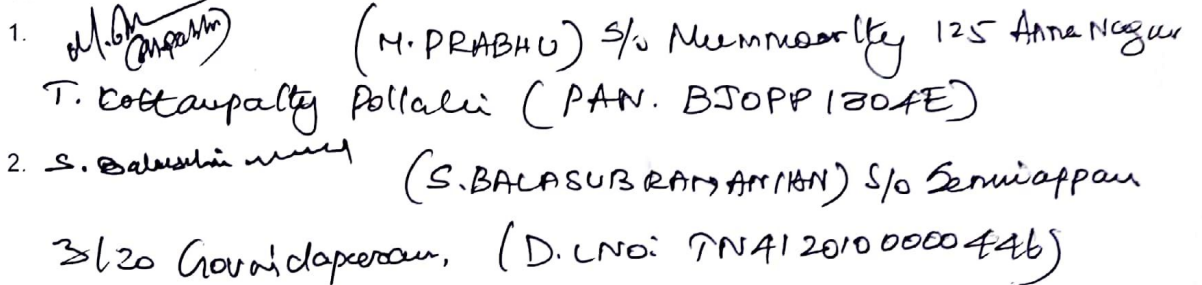 1. (M. PRABHU) S/o 125 Anna Nagar
T. Kottampatty Pollachi (PAN. BJOPP1304E)
2. S. (S. BALASUBRAMANIAN) S/o Senniappan
3/20 Govindapuram, (D.L NO: TN41 20100000446)